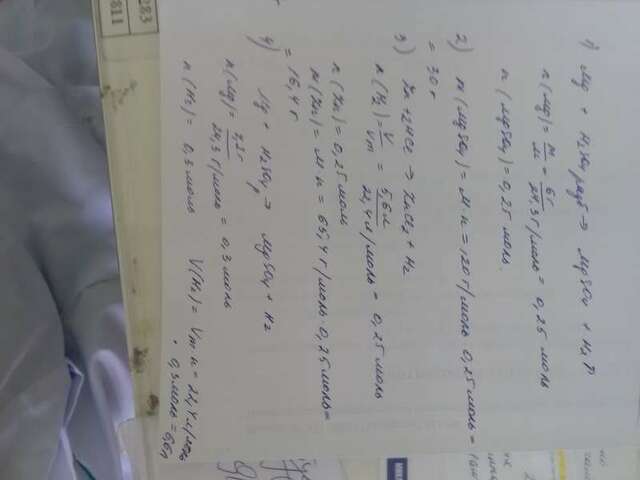 1) Mg + H2SO4 разб → MgSO4 + H2↑
n(Mg) = m/M = 6г/24,3г/моль = 0,25 моль
n(MgSO4) = 0,25 моль.
2) m(MgSO4) = M·n = 120г/моль·0,25моль =
= 30г
3) Zn + 2HCl → ZnCl2 + H2
n(H2) = V/Vm = 5,6л/22,4л/моль = 0,25 моль
n(Zn) = 0,25 моль
m(Zn) = M·n = 65,4г/моль·0,25моль =
= 16,4г
4) Mg + H2SO4 → MgSO4 + H2
n(Mg) = 7,2г/24,3г/моль = 0,3 моль
n(H2) = 0,3 моль V(H2) = Vm·n = 22,4л/моль
· 0,3моль = 6,6л
283
811